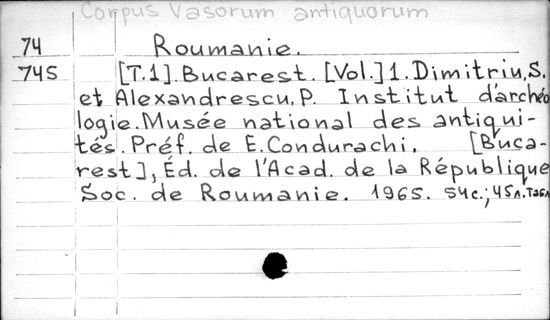 Corpus Vasorum antiquorum
74 Roumanie.
745 [T.1]. Bucarest. [Vol.] 1. Dimitriu, S.
et Alexandrescu, P. Institut d'archéo
logie. Musée national des antiqui-
tés. Préf. de E. Condurachi. [Buca-
rest], Éd. de l'Acad. de la République
Soc. de Roumanie. 1965. 54 c.; 45 л. табл